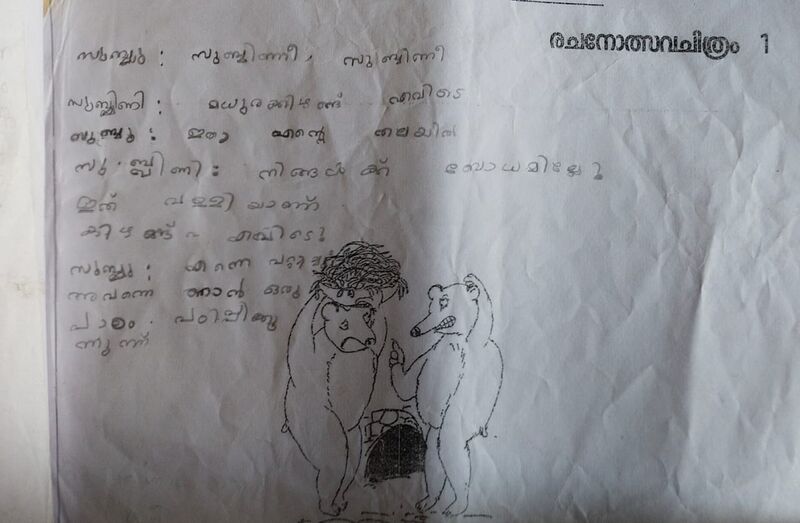 രചനോത്സവചിത്രം 1
സുബ്ബു : സുബ്ബിണീ, സുബ്ബിണീ
സുബ്ബിണി : മധുരക്കിഴങ്ങ് എവിടെ
സുബ്ബു : ഇതാ എന്റെ തലയിൽ
സുബ്ബിണി : നിങ്ങൾക്ക് ബോധമില്ലേ ?
ഇത് വള്ളി യാണ്
കിഴങ്ങ് എവിടെ ?
സുബ്ബു : എന്നെ പറ്റിച്ചു
അവനെ ഞാൻ ഒരു
പാഠം പഠിപ്പിക്കു
ന്നുണ്ട്